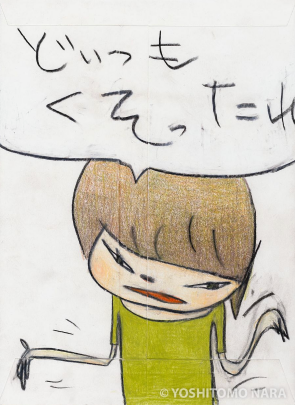 どいつも
くそったれ
© YOSHITOMO NARA